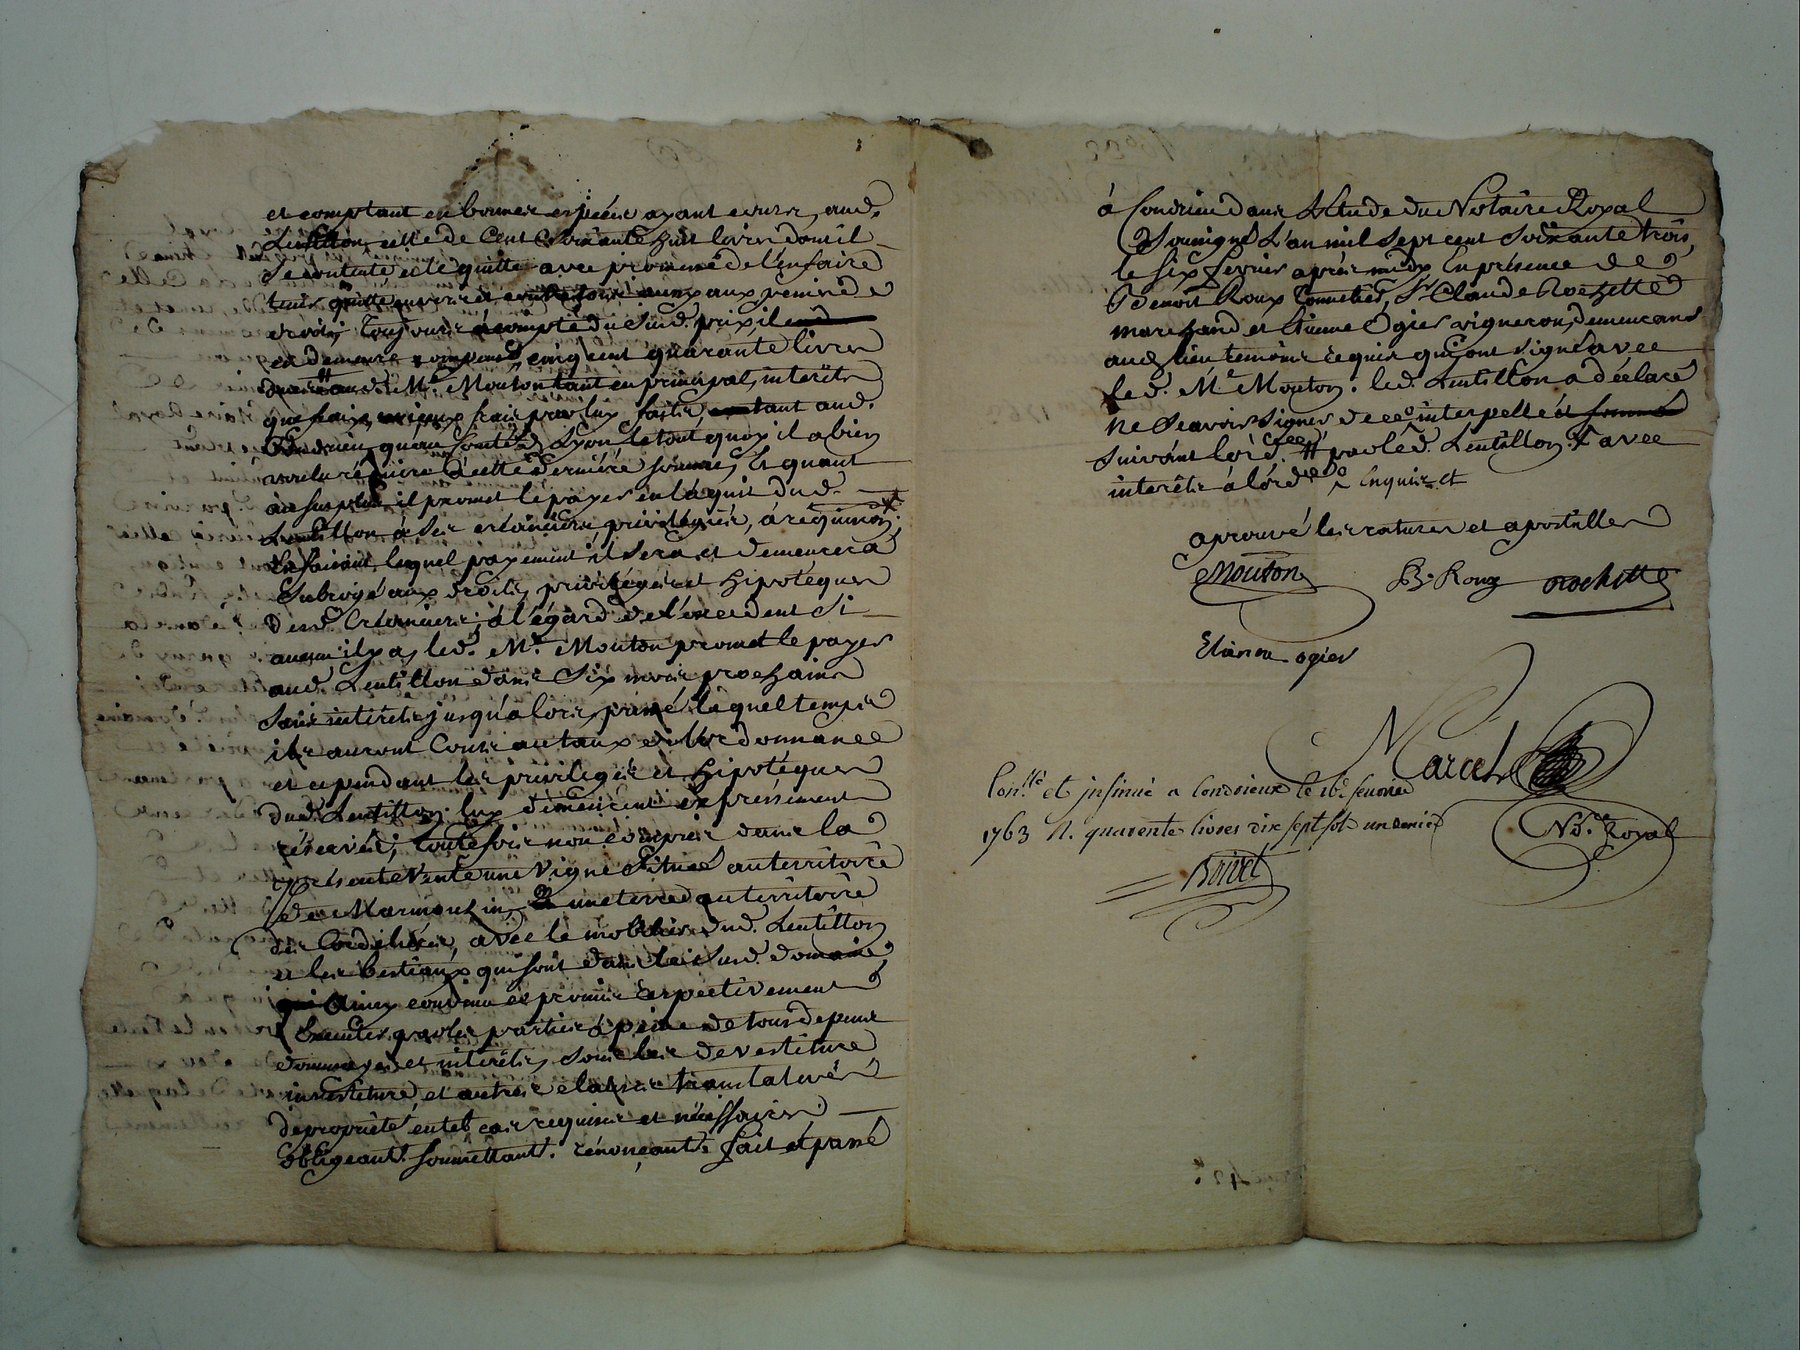 et comptant en bonnes espèces ayant cours, aud.
Lentillon celle de Cent Soixante huit livres dont il
se contente et le quitte avec promesse de l'en faire
tenir quitte envers et contre tous aux peines de
droit, toujours à compte du susd. prix
et demeure compensé, cinq cent quarante livres
aud. Me Mouton tant en principal, interêts
que frais par luy faits tant aud.
Condrieu qu'au Comté de Lyon le tout quoy il a bien
cette dernière somme, Et quant
au surplus il promet le payer en l'aquit dud.
Lentillon à ses créanciers privilégiés, à réquisition,
En faisant lequel payement il sera et demeurera
Subrogé aux droits, privilèges et hipotèques
desd. Créanciers, à l'égard de l'excedent si
aucun il y a, led. Me Mouton promet le payer
aud. Lentillon dans Six mois prochains
sans interêts jusqu'alors, passé lequel temps
ils auront Cours au taux de l'ordonnance
et cependant les privilèges et hipotèques
dud. Lentillon luy demeurent expressement
réservés, toutefois non compris dans la
présente Vente une Vigne Située au territoire
de & une terre au territoire
de avec le mobilier dud. Lentillon
et les bestiaux qui sont dans le susd. domaine,
Ainsy convenu et promis respectivement
Executer par les parties à peine de tous depens
dommages et interêts, sous les clauses de vestiture
investiture et autres clauses translatives
de propriété en tel cas requises et nécessaires.
obligeant. soumettant. rénonçant. fait et passé
à Condrieu dans l'Etude du Notaire Royal
Soussigné L'an mil Sept cent Soixante trois,
le Six fevrier après midy En présence de
Benoit Roux Sr Claude Rochette
marchand et Etienne Ogier vigneron, demeurant
aud. lieu temoins requis qui ont Signé avec
led. Me Mouton. led. Lentillon a déclaré
ne Scavoir Signer de ce interpellé
suivant l'ord.ce par led. Lentillon avec
interêts à l'ord.ce Enquis et
aprouvé les ratures et apostilles
Mouton Bt Roux Rochette
Etienne ogier
Marcel
Not.re Royal
Con.llé et insinué a Condrieux le 16e fevrier
1763 R. quarente livres dix sept sols un denier
Boiret